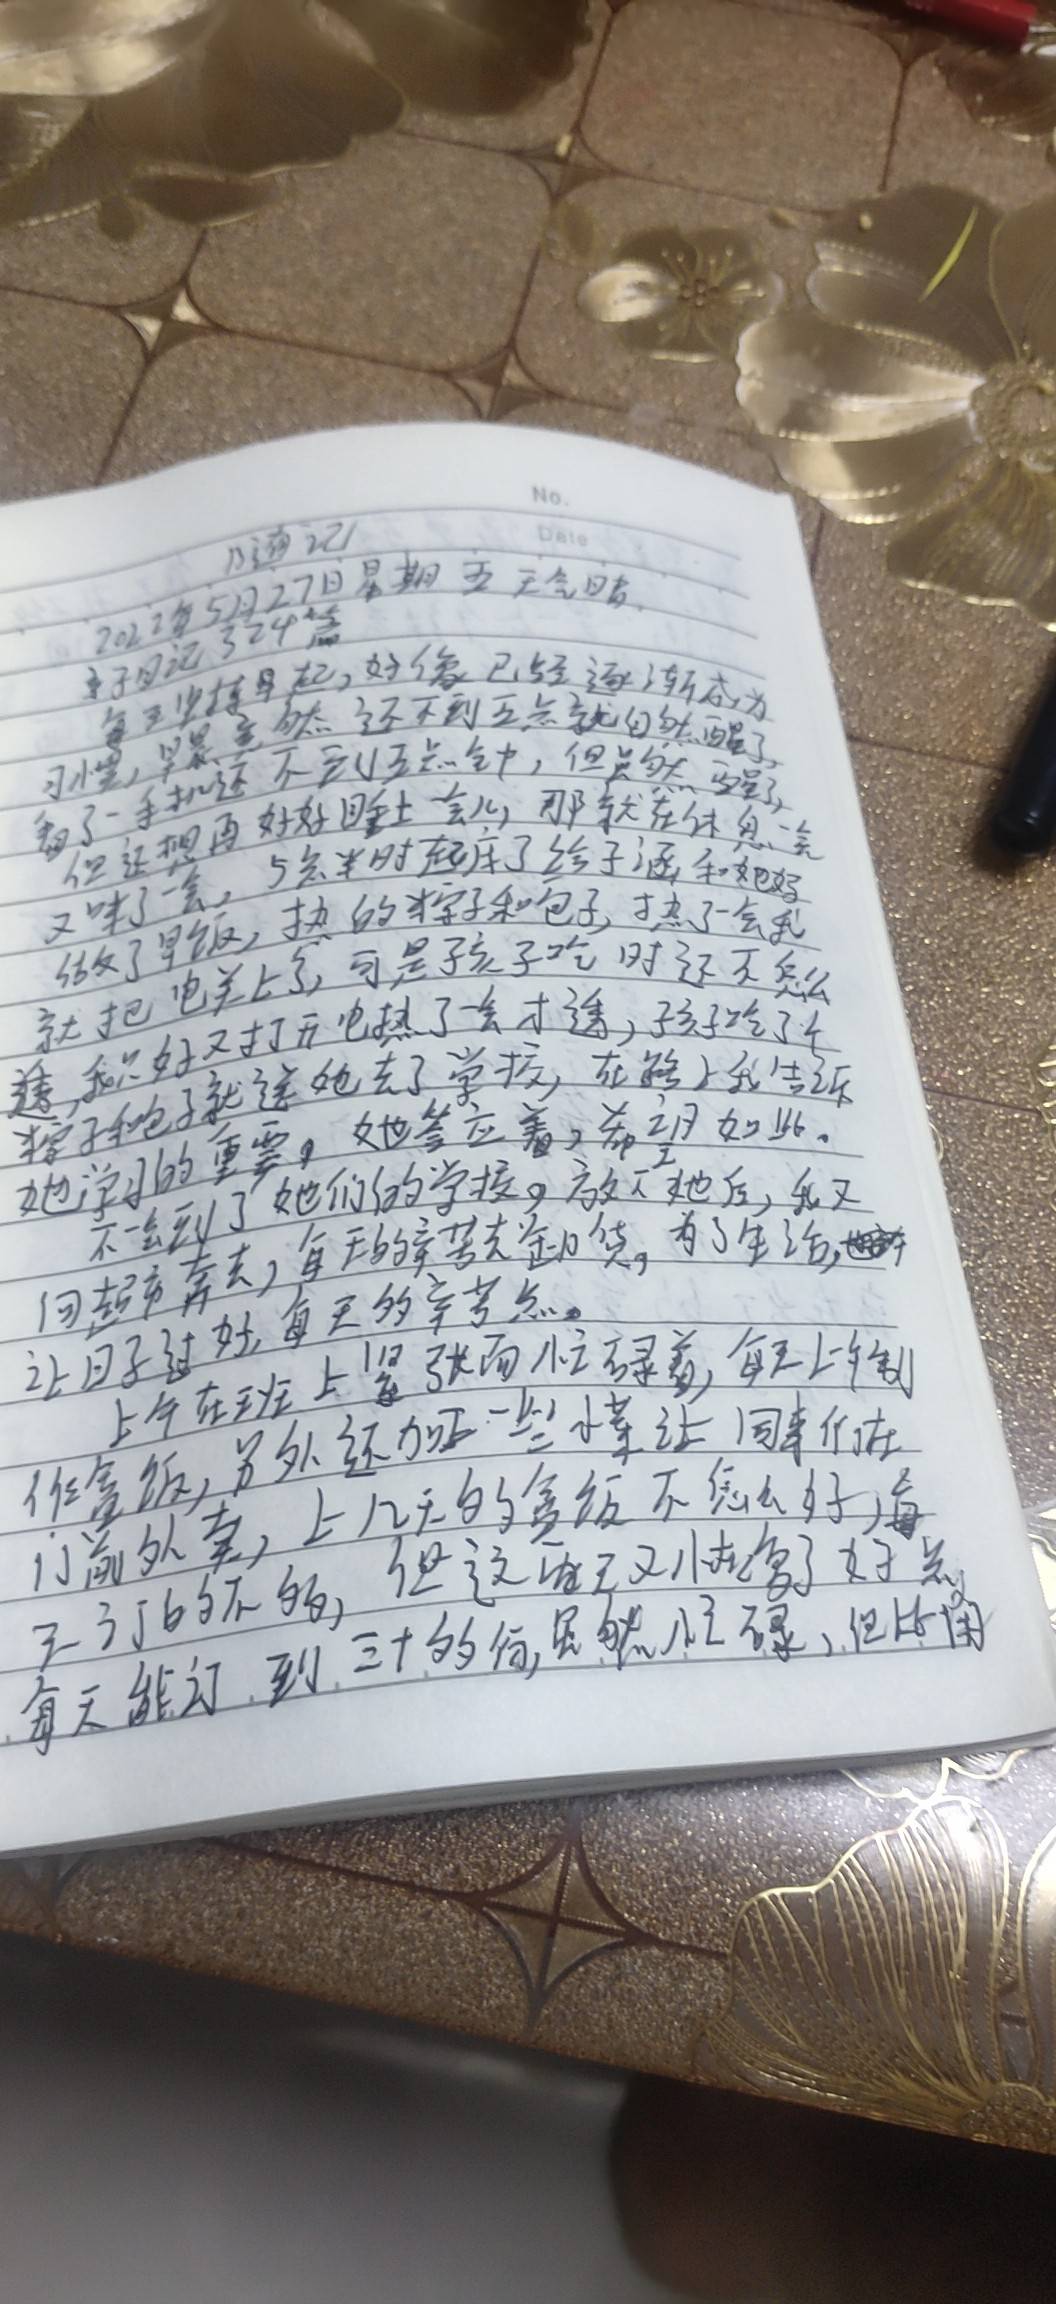 No.
随记
Date
2022年5月27日 星期五 天气晴
亲子日记324篇
每天坚持早起，好像已经逐渐成为
习惯，早晨竟然还不到五点就自然醒了，
看了一手机还不到五点钟，但虽然醒了，
但还想再好好睡上一会儿，那就在休息一会
又眯了一会，5点半时起床了给子涵和她好
做了早饭，热的粽子和包子，热了一会我
就把电关上了，可是孩子吃时还不怎么
透，我只好又打开电热了一会才透，孩子吃了个
粽子和包子就送她去了学校，在路上我告诉
她学习的重要。她答应着，希望如此。
不一会到了她们的学校。放下她后，我又
向超市奔去，每天的辛苦去卸货。为了生活，
让日子过好，每天的辛苦点。
上午在班上紧张而忙碌着，每天上午制
作盒饭，另外还加上一些小菜让同事们在
门前外卖，上几天的盒饭不怎么好，每
天订的不多，但这两天又恢复了好点，
每天能订到三十的份，虽然忙碌，但比闲